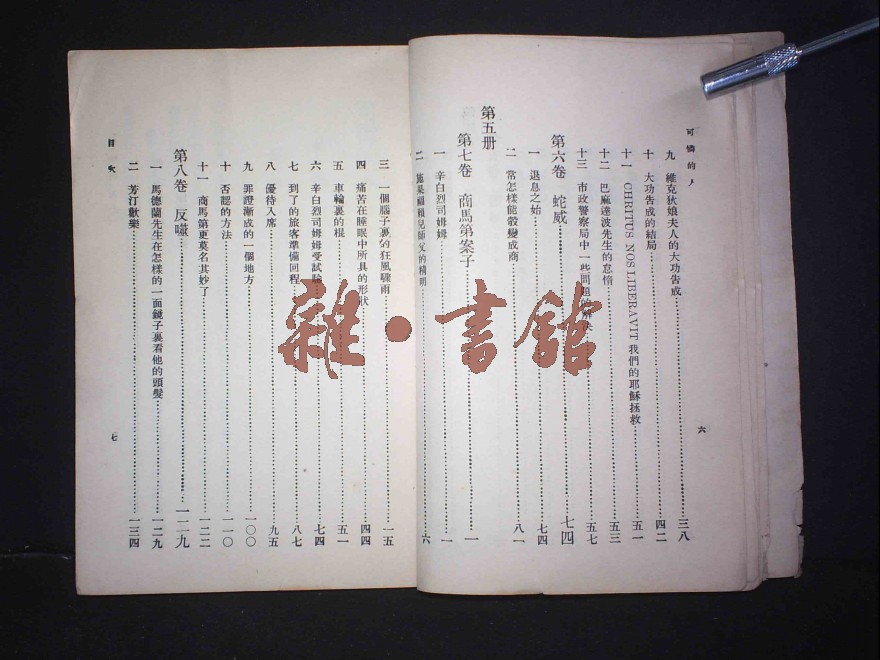 可憐的人
九 維克狄娘夫人的大功告成……三八
十 大功告成的結局……四二
十一 CHRITUS NOS LIBERAVIT 我們的耶穌拯救……五一
十二 巴麻達波先生的怠惰……五三
十三 市政警察局中一些問題的解決……五七
第六卷 蛇威……七四
一 退息之始……七四
二 常怎樣能彀變成商……八一
第五册
第七卷 商馬第案子……一
一 辛白烈司姆姆……一
二 師父的精明……六
六
三 一個腦子裏的狂風驟雨……一五
四 痛苦在睡眠中所具的形狀……四四
五 車輪裏的棍……五一
六 辛白烈司姆姆受試驗……七四
七 到了的旅客準備回程……八七
八 優待入席……九五
九 罪證漸成的一個地方……一〇〇
十 否認的方法……一一〇
十一 商馬第更莫名其妙了……一二二
第八卷 反噬……一二九
一 馬德蘭先生在怎樣的一面鏡子裏看他的頭髮……一二九
二 芳汀歡樂……一三四
目次
七
雜·書館